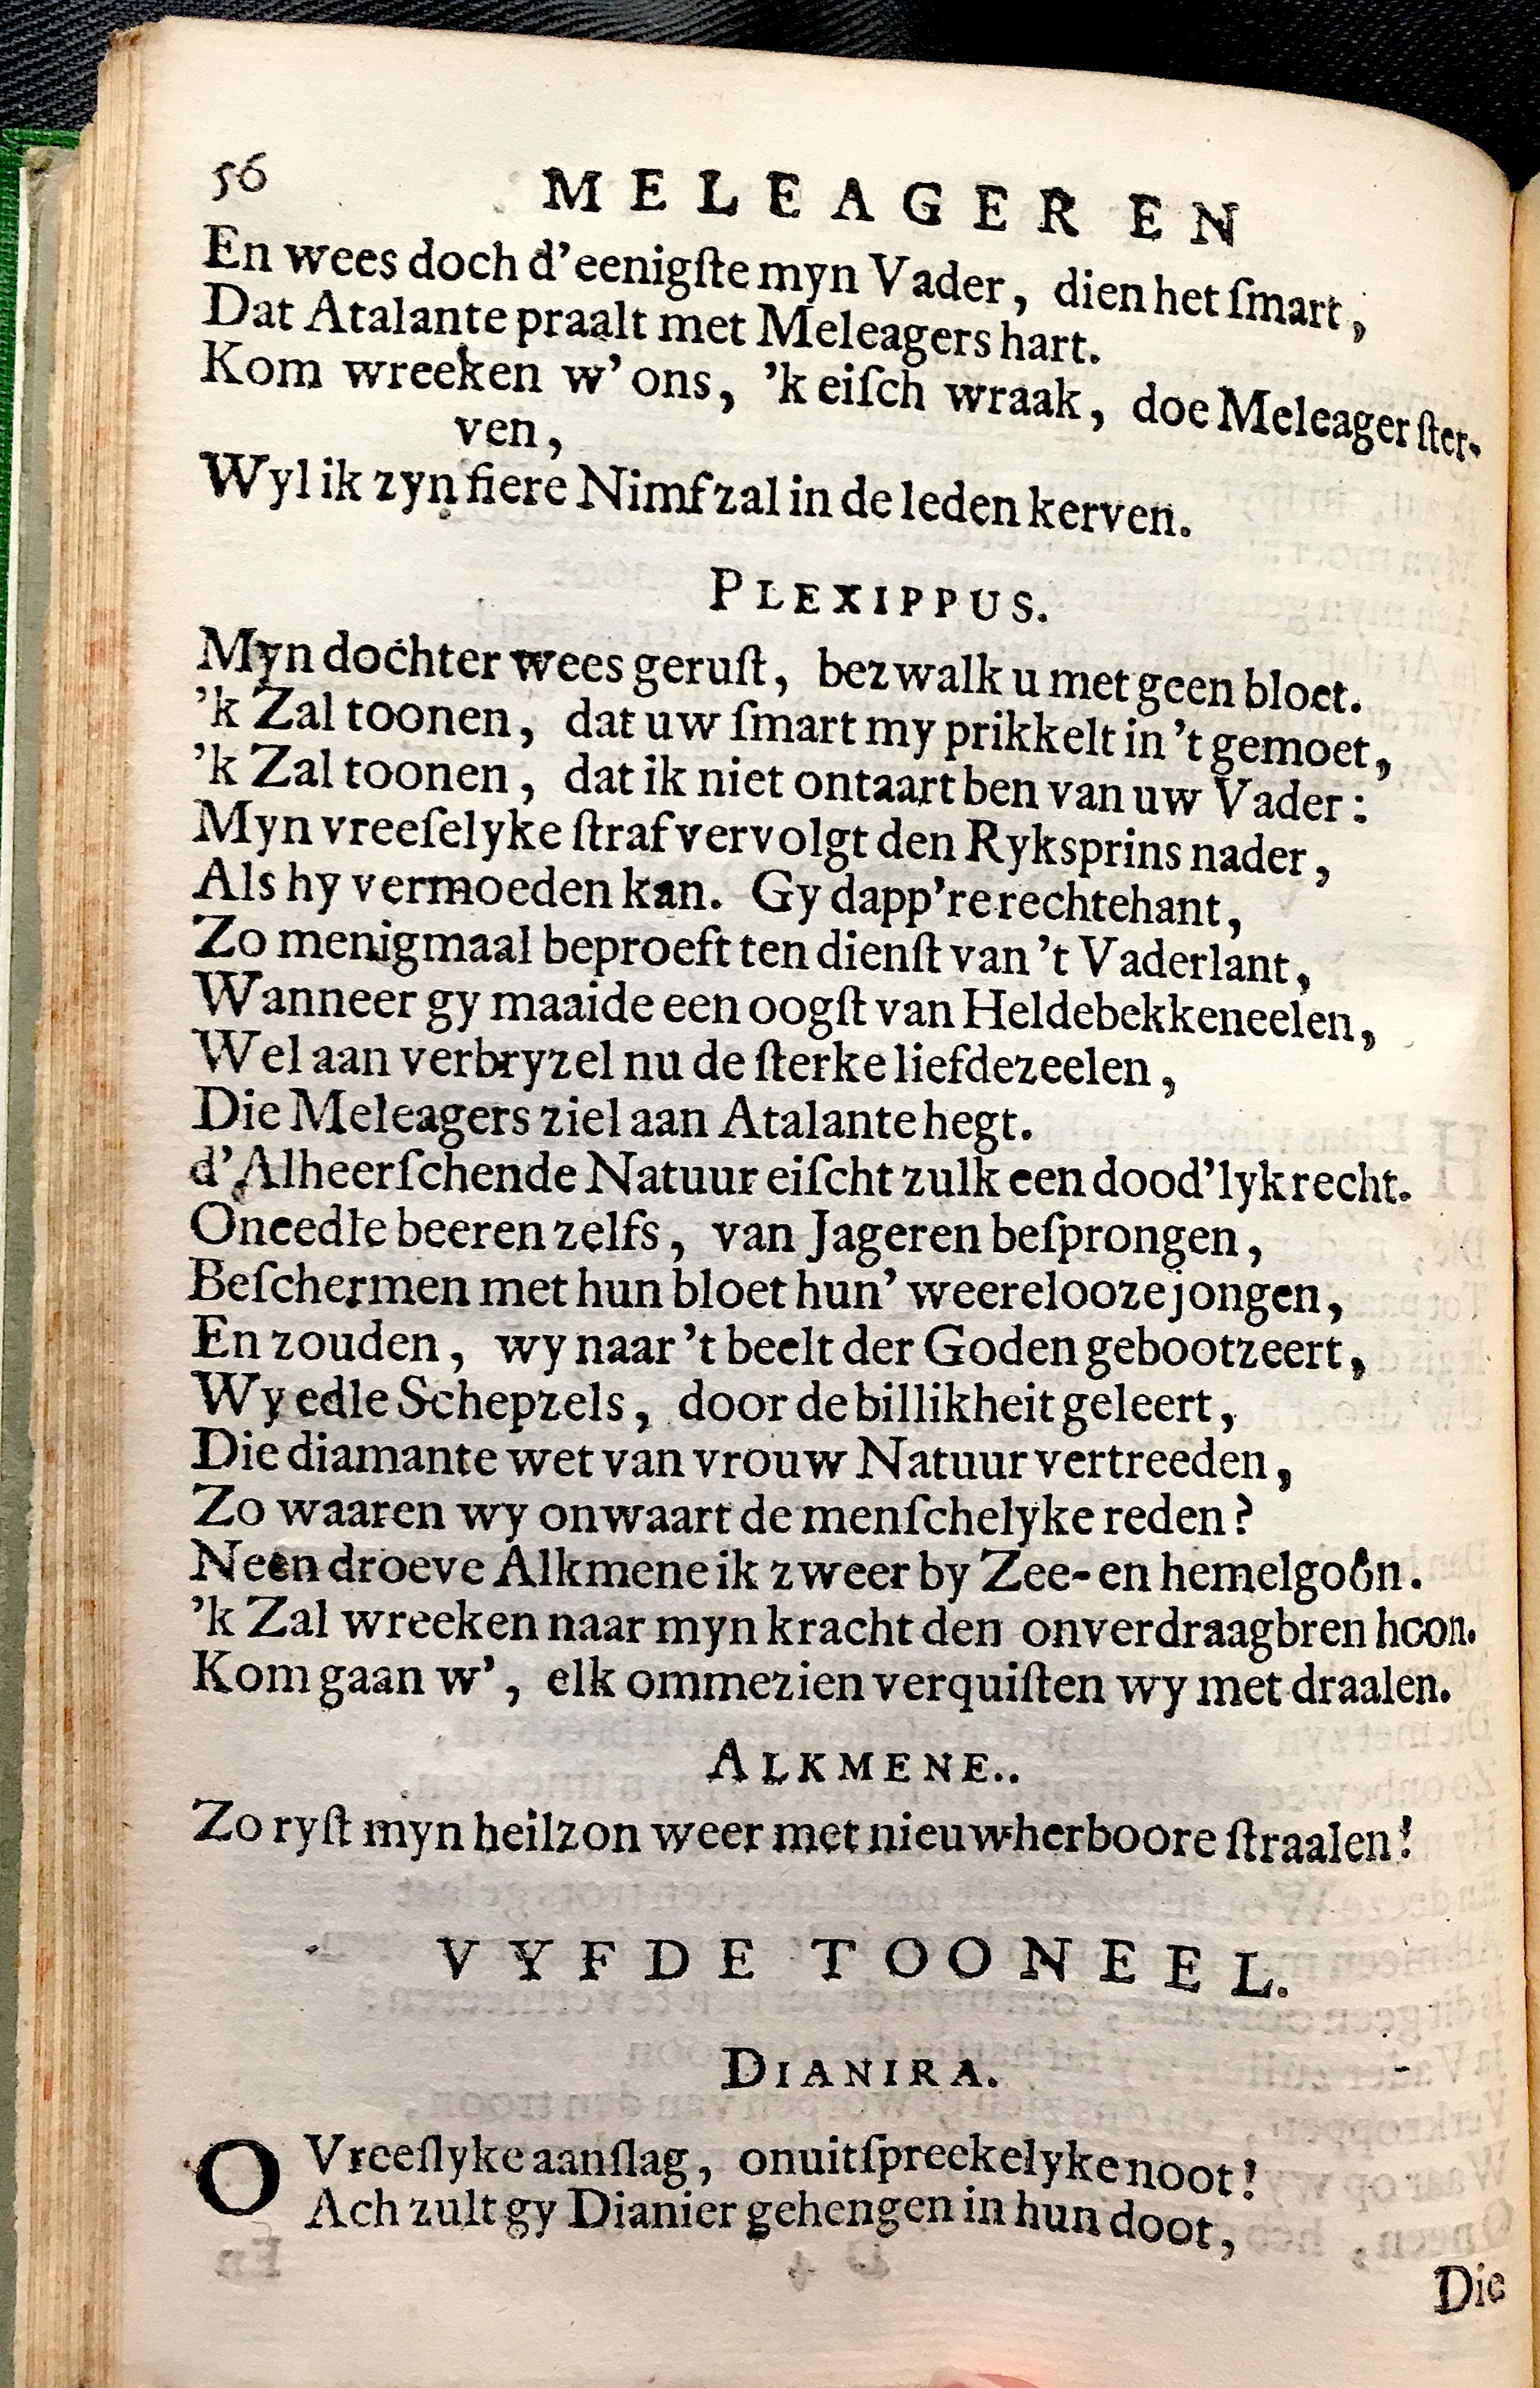 56
MELEAGER EN
En wees doch d'eenigſte myn Vader, dien het ſmart,
Dat Atalante praalt met Meleagers hart.
Kom wreeken w'ons, 'k eiſch wraak, doe Meleager ſter-
ven,
Wyl ik zyn fiere Nimf zal in de leden kerven.
PLEXIPPUS.
Myn dochter wees geruſt, bezwalk u met geen bloet.
'k Zal toonen, dat uw ſmart my prikkelt in 't gemoet,
'k Zal toonen, dat ik niet ontaart ben van uw Vader:
Myn vreeſelyke ſtraf vervolgt den Ryksprins nader,
Als hy vermoeden kan. Gy dapp're rechtehant,
Zo menigmaal beproeft ten dienſt van 't Vaderlant,
Wanneer gy maaide een oogſt van Heldebekkeneelen,
Wel aan verbryzel nu de ſterke liefdezeelen,
Die Meleagers ziel aan Atalante hegt.
d'Alheerſchende Natuur eiſcht zulk een dood'lyk recht.
Oneedle beeren zelfs, van Jageren beſprongen,
Beſchermen met hun bloet hun' weerelooze jongen,
En zouden, wy naar 't beelt der Goden gebootzeert,
Wy edle Schepzels, door de billikheit geleert,
Die diamante wet van vrouw Natuur vertreeden,
Zo waaren wy onwaart de menſchelyke reden?
Neen droeve Alkmene ik zweer by Zee- en hemelgoôn.
'k Zal wreeken naar myn kracht den onverdraagbren hoon.
Kom gaan w', elk ommezien verquiſten wy met draalen.
ALKMENE..
Zo ryſt myn heilzon weer met nieuwherboore ſtraalen!
VYFDE TOONEEL.
DIANIRA.
O Vreeſlyke aanſlag, onuitſpreekelyke noot!
Ach zult gy Dianier gehengen in hun doot,
Die